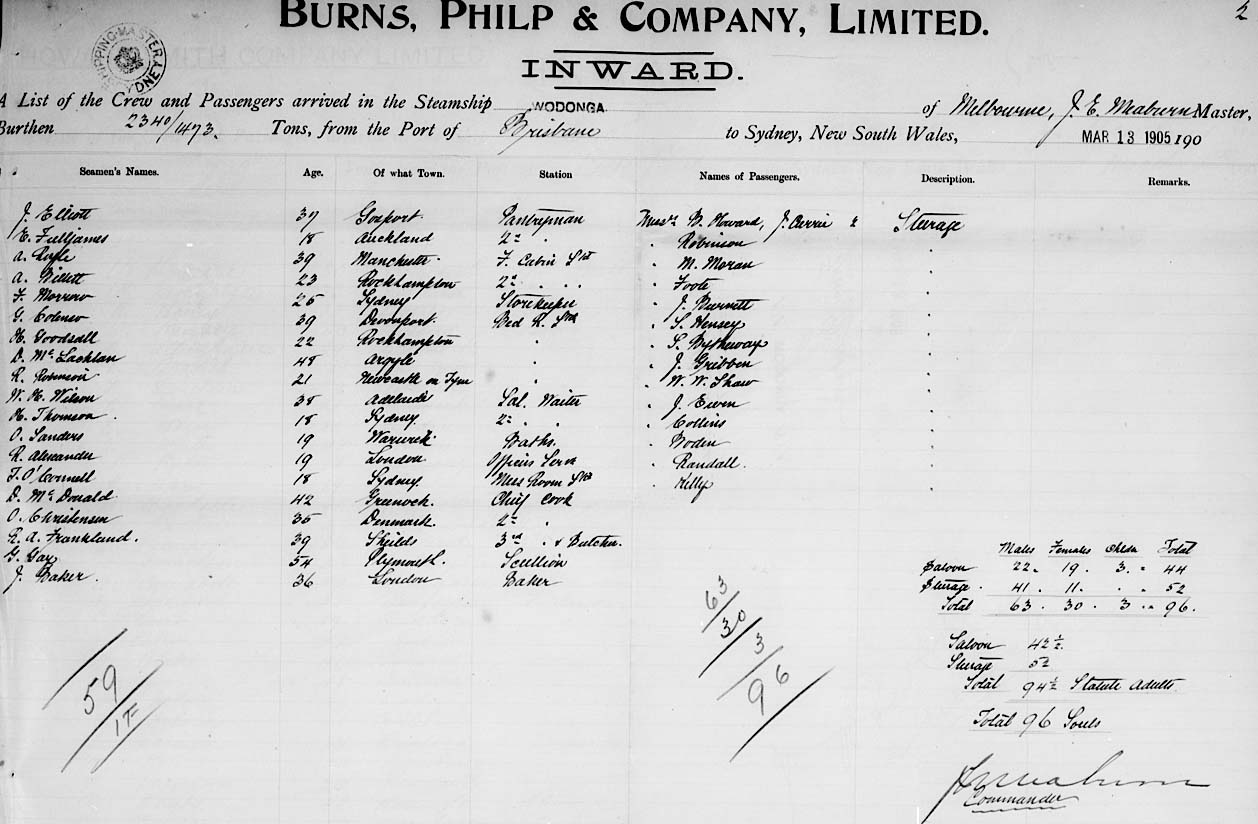 2
BURNS, PHILP & COMPANY, LIMITED.
SHIPPING MASTER SYDNEY
INWARD.
A List of the Crew and Passengers arrived in the Steamship WODONGA of Melbourne, J. E. Meaburn Master,
Burthen 2340/1473. Tons, from the Port of Brisbane to Sydney, New South Wales, MAR 13 1905 190
Seamen's Names. Age. Of what Town. Station Names of Passengers. Description. Remarks.
J. Elliott 37 Gosport. Pantryman Messrs B. Howard, J. Currie & Steerage
E. Fulljames 18 Auckland 2nd " Robinson "
A. Ryle 39 Manchester. F. Cabin Std " M. Moran "
A. Willett 23 Rockhampton 2nd " " " Foote "
F. Morrow 25 Sydney Storekeeper " J. Burnett "
G. Colenso 39 Devonport. Bed R. Std " S. Hensey "
H. Goodsall 22 Rockhampton " " S. Bytheway "
D. McLachlan 48 Argyle " " J. Gribben "
R. Robinson 21 Newcastle on Tyne " " W. W. Shaw "
W. H. Wilson 38 Adelaide Sal. Waiter " J. Ewen "
H. Thomson. 18 Sydney. 2nd " " " Collins "
O. Sanders 19 Warwick Baths. " Boden "
R. Alexander 19 London Officers Serv " Randall. "
T. O'Connell 18 Sydney Mess Room Std " Kelly "
D. McDonald 42 Greenock. Chief Cook
O. Christensen 35 Denmark. 2nd "
R. A. Frankland. 39 Shields 3rd " & Butcher.
G. Gay 54 Plymouth. Scullion
J. Baker. 36 London Baker
Males Females Childn Total
Saloon 22 " 19. 3. " 44
Steerage. 41. 11. " " 52
Total 63. 30. 3 " 96.
63/30/3/96
Saloon 42½.
Steerage 52
Total 94½ Statute Adults
Total 96 Souls
59/17
J E Meaburn
Commander